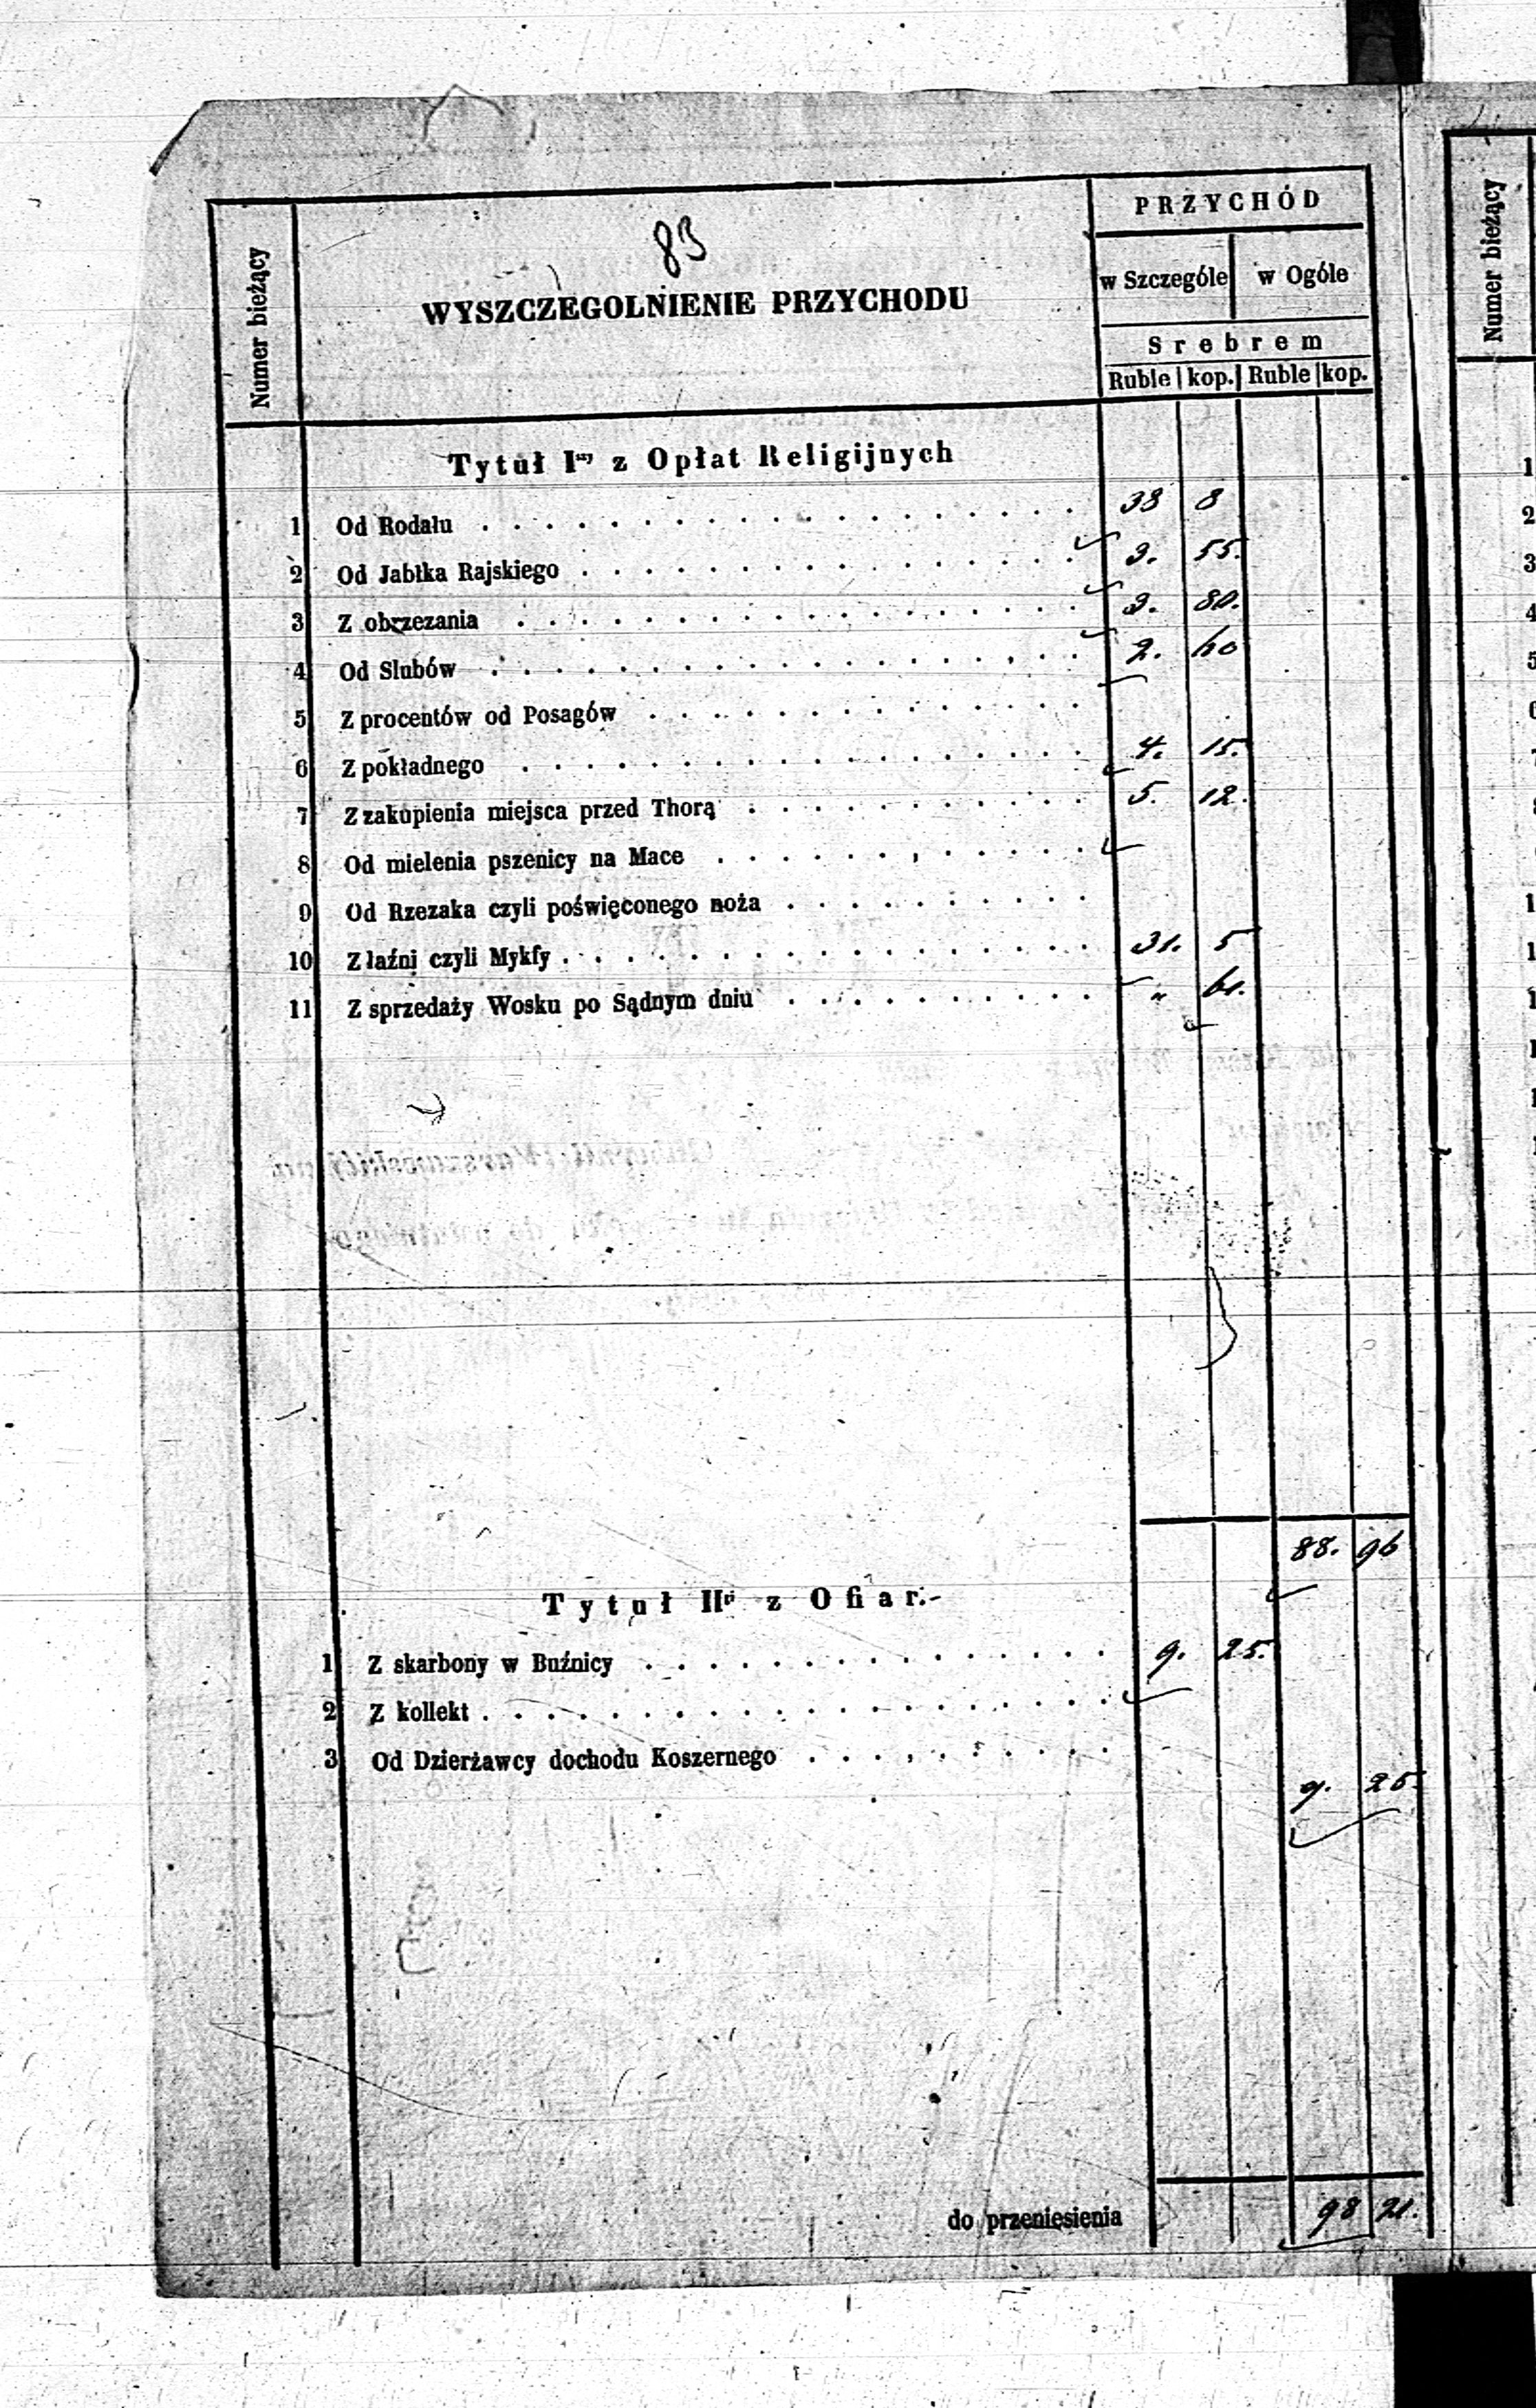 83
Numer bieżący
WYSZCZEGOLNIENIE PRZYCHODU
PRZYCHÓD
w Szczególe w Ogóle
Srebrem
Ruble kop. Ruble kop.
Tytuł I z Opłat Religijnych
1 Od Rodału 38 8
2 Od Jabłka Rajskiego 3. 55.
3 Z obrzezania 3. 80.
4 Od Slubów 2. 60
5 Z procentów od Posagów
6 Z pokładnego 4. 15.
7 Z zakupienia miejsca przed Thorą 5. 12.
8 Od mielenia pszenicy na Mace
9 Od Rzezaka czyli poświęconego noża
10 Z łaźni czyli Mykfy 31. 5
11 Z sprzedaży Wosku po Sądnym dniu " 61.
88. 96
Tytuł II z Ofiar.-
1 Z skarbony w Buźnicy 9. 25.
2 Z kollekt
3 Od Dzierżawcy dochodu Koszernego
9. 25.
do przeniesienia 98 21.
Numer bieżący
1
2
3
4
5